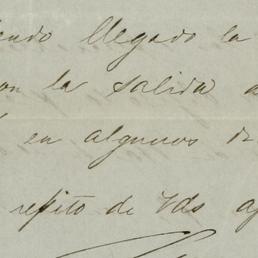 endo llegado la
on la salida a
en algunos de
repito de Vds af